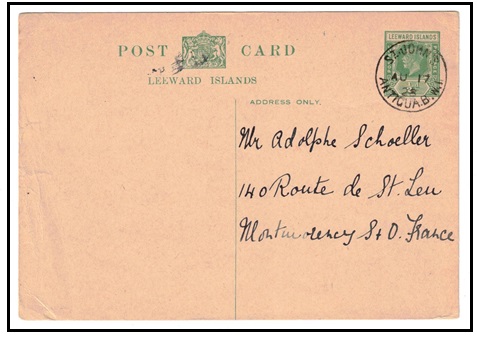 POST CARD
LEEWARD ISLANDS
LEEWARD ISLANDS
ST. JOHN'S
AU 17
ANTIGUA. B.W.I.
ADDRESS ONLY.
Mr Adolphe Schoeller
140 Route de St. Leu
Montmorency S & O. France